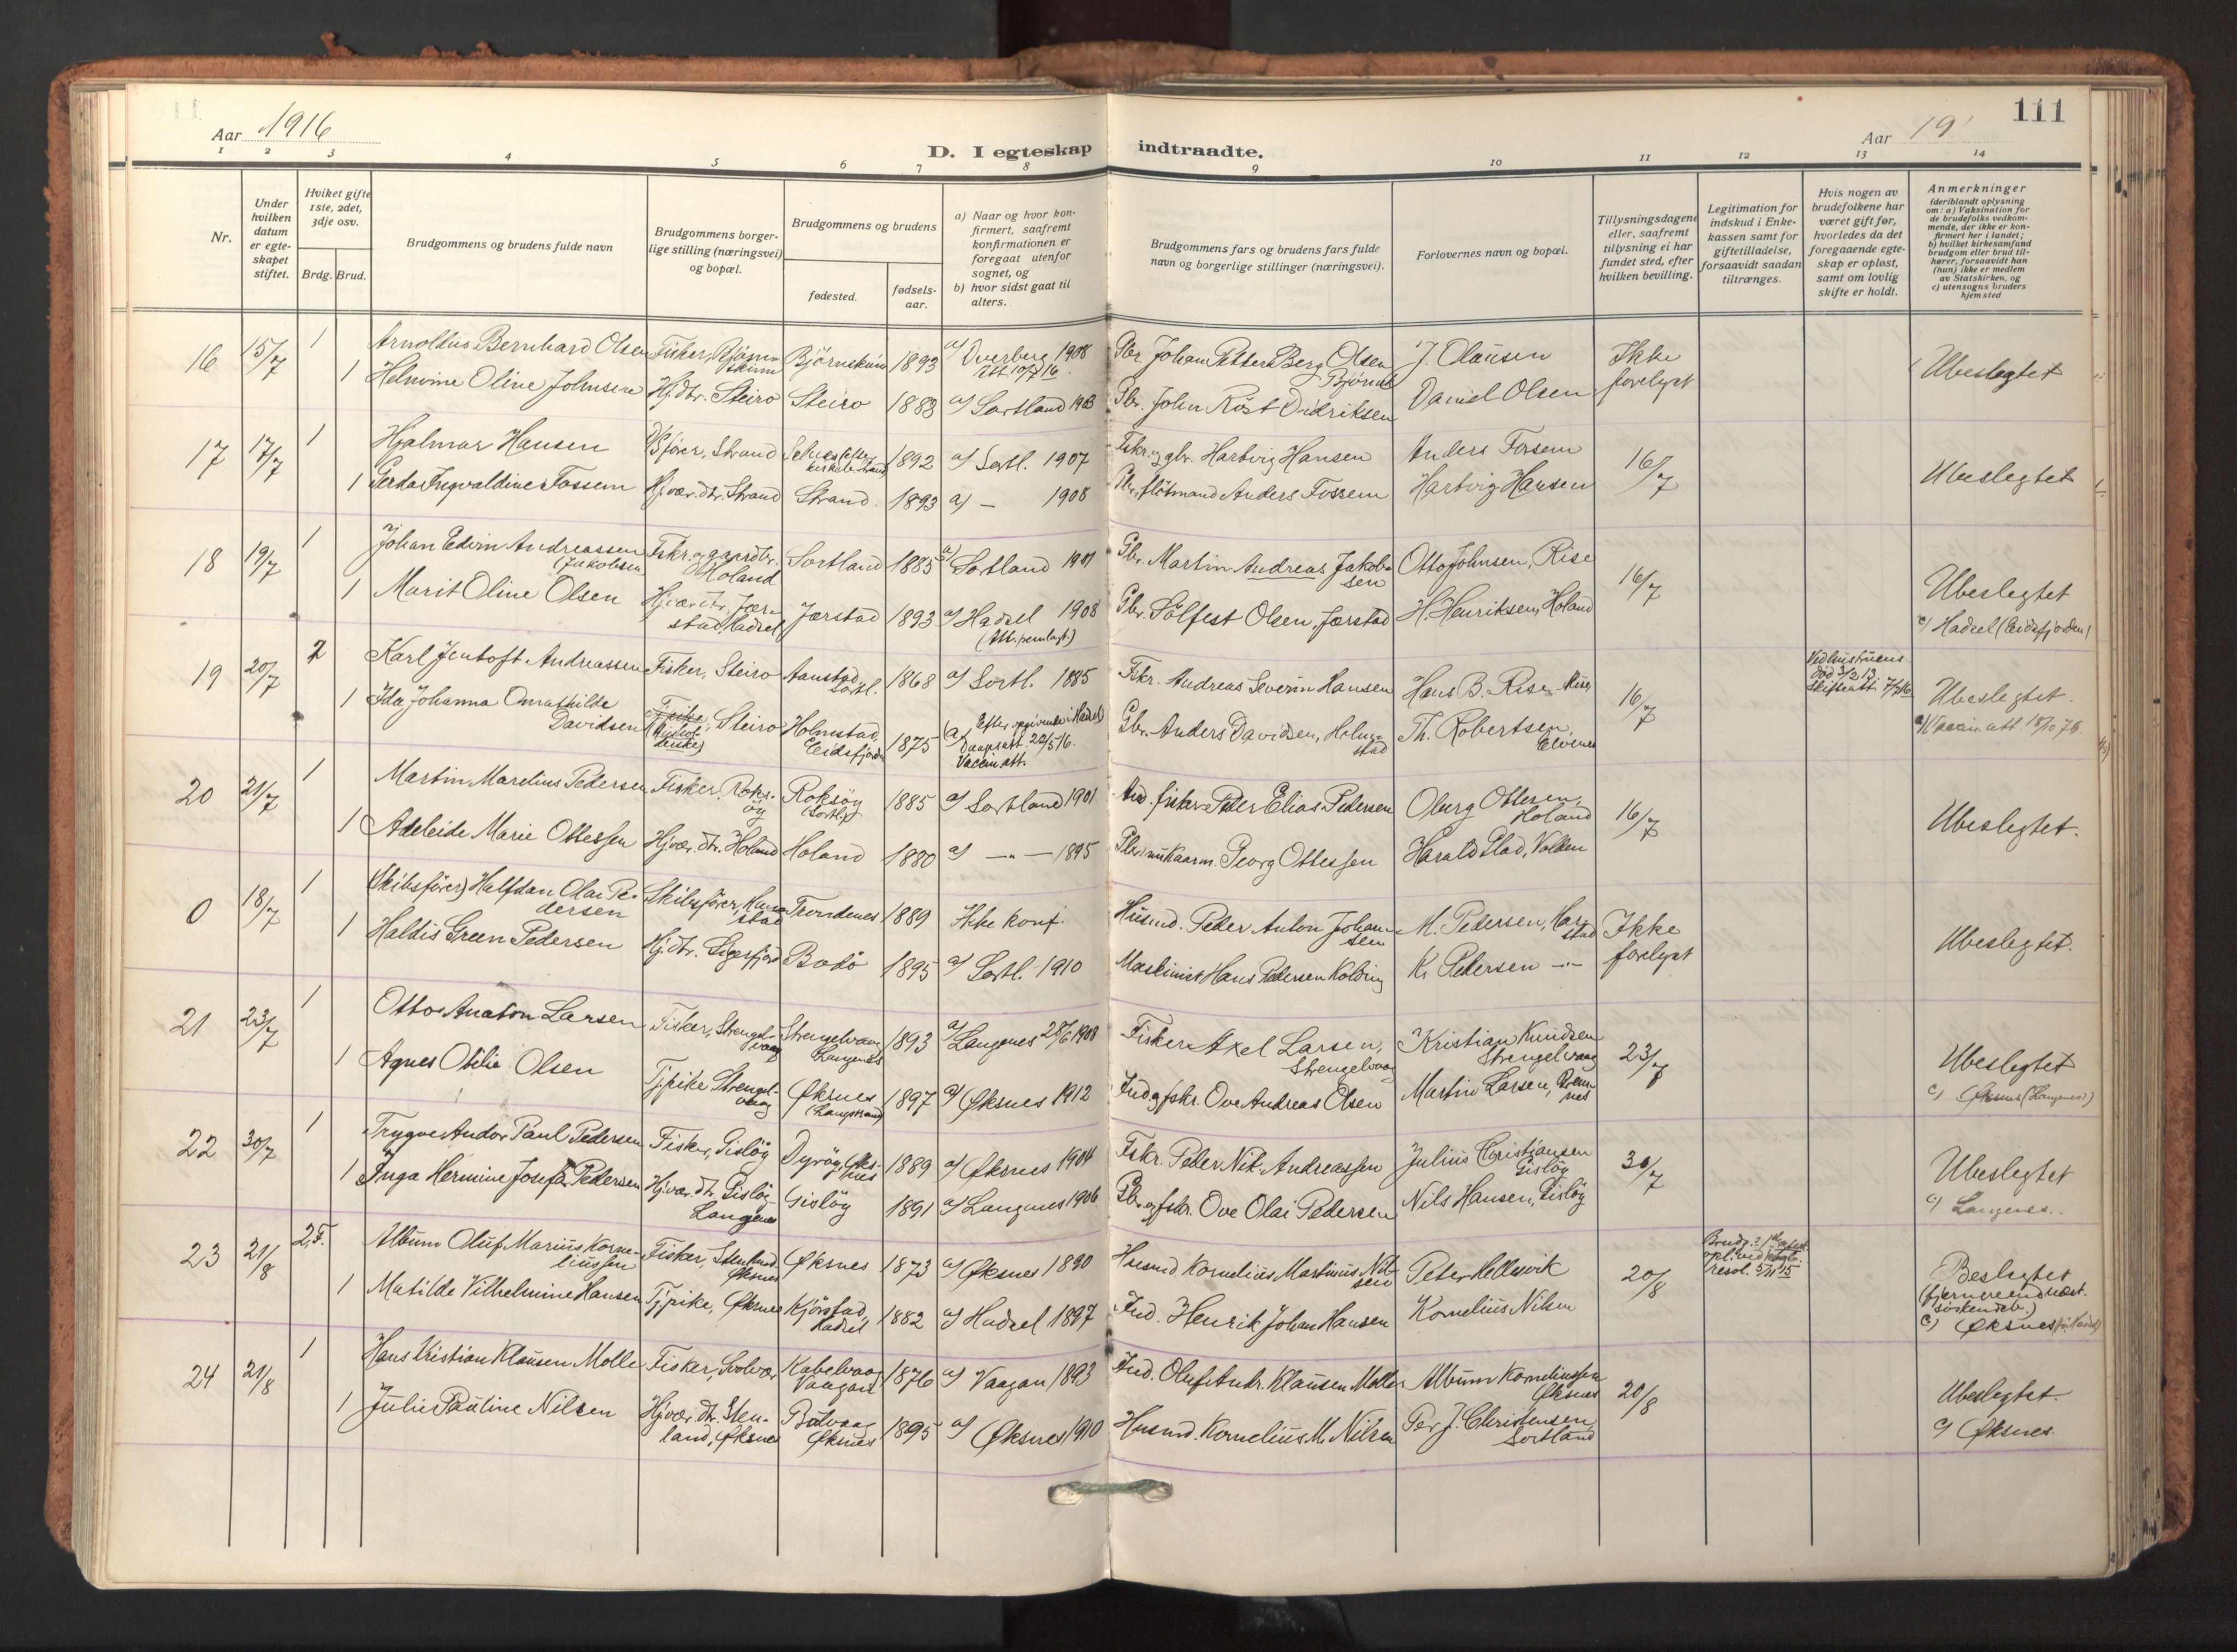 Aar 1916
D. I egteskap indtraadte.
Aar 19
111
1 2 3 4 5 6 7 8 9 10 11 12 13 14
Nr.
Under hvilken datum er egteskapet stiftet.
Hviket gifte 1ste, 2det, 3dje osv.
Brdg. Brud.
Brudgommens og brudens fulde navn
Brudgommens borgerlige stilling (næringsvei) og bopæl.
Brudgommens og brudens
fødested.
fødselsaar.
a) Naar og hvor konfirmert, saafremt konfirmationen er foregaat utenfor sognet, og
b) hvor sidst gaat til alters.
Brudgommens fars og brudens fars fulde navn og borgerlige stillinger (næringsvei).
Forlovernes navn og bopæl.
Tillysningsdagene eller, saafremt tillysning ei har fundet sted, efter hvilken bevilling.
Legitimation for indskud i Enkekassen samt for giftetilladelse, forsaavidt saadan tiltrænges.
Hvis nogen av brudefolkene har været gift før, hvorledes da det foregaaende egteskap er opløst, samt om lovlig skifte er holdt.
Anmerkninger (deriblandt oplysning om: a) Vaksination for de brudefolks vedkommende, der ikke er konfirmert her i landet; b) hvilket kirkesamfund brudgom eller brud tilhører, forsaavidt han (hun) ikke er medlem av Statskirken, og c) utensogns bruders hjemsted
16 15/7 1 Arnoldus Bernhard Olsen Fisker, Bjørnskinn Bjørnskinn 1893 a) Dverberg 1908 Att 10/7 16. Gbr. Johan Petter Berg Olsen Bjørnsk J. Olausen Ikke forelyst Ubeslegtet
1 Helmine Oline Johnsen Hj. dtr. Steiro Steiro 1888 a) Sortland 1903 Gbr. John Röst Didriksen Daniel Olsen
17 17/7 1 Hjalmar Hansen D/S fører, Strand 1892 a) Sortl. 1907 Fskr. og gbr. Hartvig Hansen Anders Forsem 16/7 Ubeslegtet
1 Gerda Ingvaldine Fossem Hj. vær. dtr. Strand Strand 1893 a) — 1908 Gbr. flötmand Anders Fossem Hartvig Hansen
18 19/7 1 Johan Edvin Andreassen (Jakobsen) Fskr. og gaardbr. Holand Sortland 1885 a) Sortland 1901 Gbr. Martin Andreas Jakobsen Otto Johnsen, Rise 16/7 Ubeslegtet
1 Marit Oline Olsen Hj. vær. dtr. Jørstad, Hadsel Jørstad 1893 a) Hadsel 1908 (Att. fremlagt) Gbr. Sölfest Olsen, Jørstad H. Henriksen, Holand c) Hadsel (Eidsfjorden)
19 20/7 2 Karl Jentoft Andreassen Fisker, Steiro Aanstad, Sortl. 1868 a) Sortl. 1885 Fskr. Andreas Severin Hansen Hans B. Rise, Rise 16/7 Ved hustruens död 3/2 13 Skifteatt. 7/7 16 Ubeslegtet.
1 Ida Johanna Omathilde Davidsen Steiro Holmstad, Eidsfjorden 1875 (a) Efter opgivende i Hadsel Daapsatt. 22/5 16. Vaccin att. Gbr. Anders Davidsen, Holmstad Th. Robertsen, Elvenes a) Vaccin. att. 18/10 76
20 21/7 1 Martin Marelius Pedersen Fisker, Roksøy Roksøy (Sortl) 1885 a) Sortland 1901 Ind. fisker Peder Elias Pedersen Oberg Ottesen, Holand 16/7 Ubeslegtet.
1 Adeleide Marie Ottessen Hj. vær. dtr. Holand Holand 1880 a) —"— 1895 Georg Ottessen Harald Blad, Valden
0 18/7 1 (Skibsfører) Halfdan Olai Pedersen Skibsfører, Harstad Trondenes 1889 Ikke konf. Husmd. Peder Anton Johansen M. Pedersen, Harstad Ikke forelyst Ubeslegtet.
1 Haldis Green Pedersen Hj. dtr. Sigerfjord Bodö 1895 a) Sortl. 1910 Maskinist Hans Pedersen Kolding K. Pedersen —"—
21 23/7 1 Otto Anaton Larsen Fisker, Strengelvaag Strengelvaag Langenes 1893 a) Langenes 28/6 1908 Fisker Axel Larsen, Strengelvaag Kristian Knudsen Strengelvaag 23/7 Ubeslegtet
1 Agnes Otilie Olsen Tj. pike Strengelvaag Øksnes (Langstrand) 1897 a) Øksnes 1912 Ind. og fskr. Ove Andreas Olsen Martin Larsen, c) Øksnes (Langenes)
22 30/7 1 Trygve Andor Paul Pedersen Fisker, Gislöy Dyröy, Øksnes 1889 a) Øksnes 1904 Fskr. Peder Nik. Andreassen Julius Christiansen Gislöy 30/7 Ubeslegtet
1 Inga Hermine Josefa Pedersen Hj. vær. dtr. Gislöy Langenes Gislöy 1891 a) Langenes 1906 Gbr. og fskr. Ove Olai Pedersen Nils Hansen, Gislöy c) Langenes.
23 21/8 2. F. Album Oluf Marius Korneliussen Fisker, Stenland Øksnes Øksnes 1873 a) Øksnes 1890 Husmd. Kornelius Martinus Nilsen Peter Hellesvik 20/8 resol. 5/11 15 Beslegtet (fjernere end næst. søskendeb.)
1 Matilde Vilhelmine Hansen Tj. pike, Øksnes Kjörstad, Hadsel 1882 a) Hadsel 1897 Ind. Henrik Johan Hansen Kornelius Nilsen c) Øksnes
24 21/8 1 Hans Kristian Klausen Molle Fisker, Svolvær Kabelvaag Vaagan 1876 a) Vaagan 1893 Ind. Oluf Andr. Klausen Molle Album Korneliussen Øksnes 20/8 Ubeslegtet.
1 Julie Pauline Nilsen Hj. vær. dtr. Stenland, Øksnes Øksnes 1895 a) Øksnes 1910 Husmd. Kornelius M. Nilsen Per J. Christensen Sortland c) Øksnes.